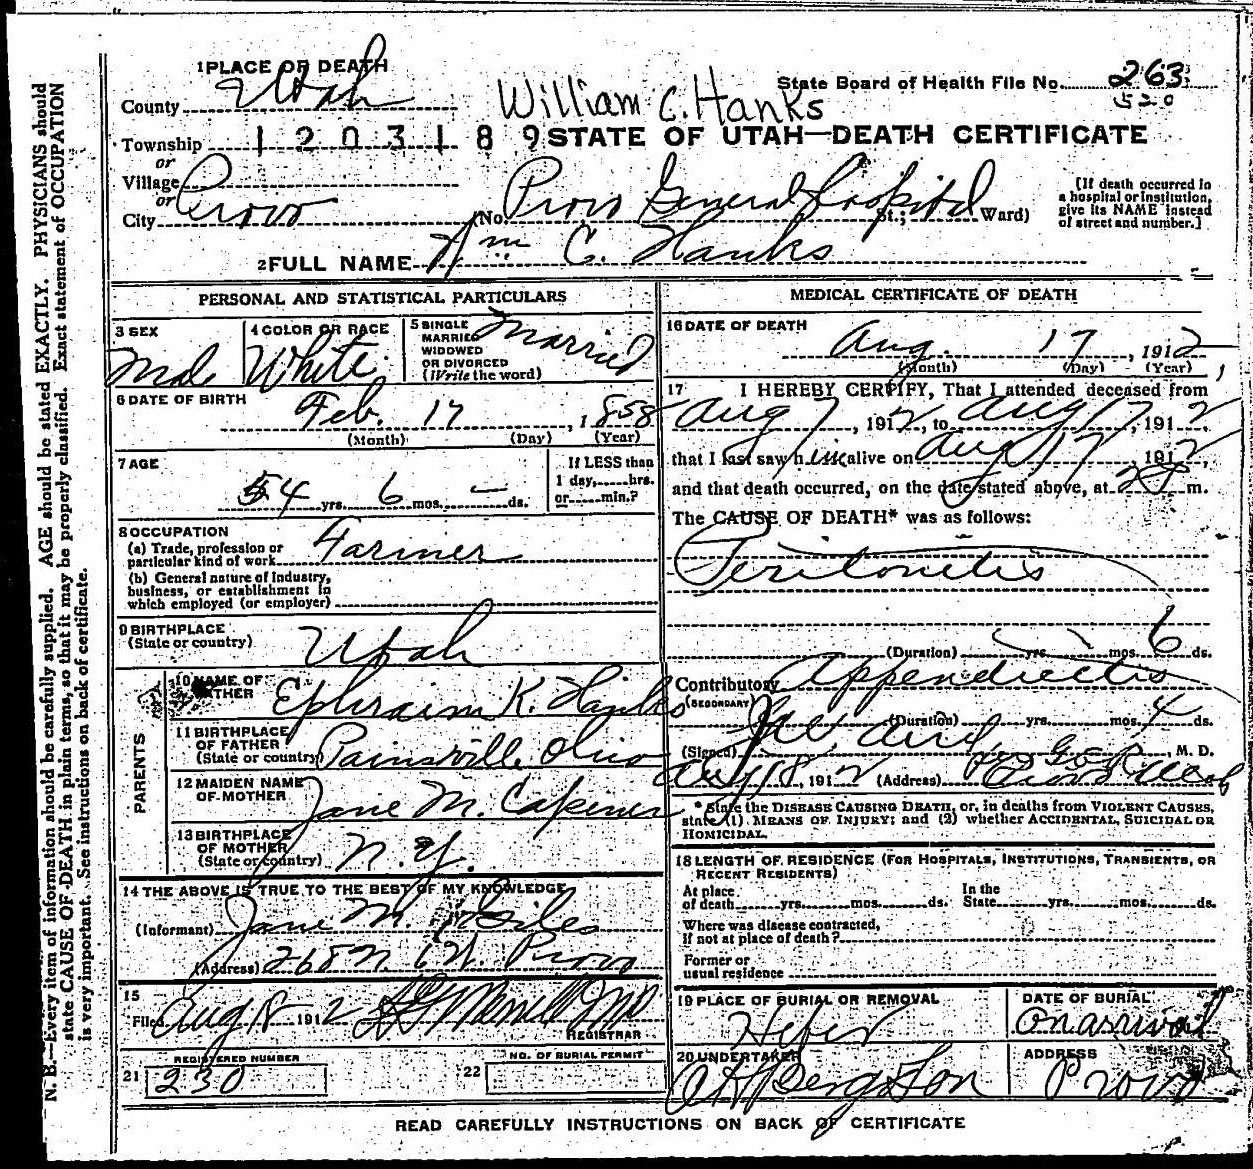 1 PLACE OF DEATH
County Utah
William C. Hanks
State Board of Health File No. 263
520
Township 1203189 STATE OF UTAH—DEATH CERTIFICATE
or
Village
or
City Provo (No. Provo General Hospital St.; Ward)
[If death occurred in
a hospital or institution,
give its NAME instead
of street and number.]
2 FULL NAME Wm C. Hanks
PERSONAL AND STATISTICAL PARTICULARS
3 SEX
Male
4 COLOR OR RACE
White
5 SINGLE
MARRIED
WIDOWED
OR DIVORCED
(Write the word)
Married
6 DATE OF BIRTH
Feb. 17, 1858
(Month) (Day) (Year)
7 AGE
54 yrs. 6 mos. — ds.
If LESS than
1 day, hrs.
or min.?
8 OCCUPATION
(a) Trade, profession or
particular kind of work Farmer
(b) General nature of industry,
business, or establishment in
which employed (or employer)
9 BIRTHPLACE
(State or country)
Utah
PARENTS
10 NAME OF
FATHER
Ephraim K. Hanks
11 BIRTHPLACE
OF FATHER
(State or country) Painsville Ohio
12 MAIDEN NAME
OF MOTHER
Jane M. Capener
13 BIRTHPLACE
OF MOTHER
(State or country) N.Y.
14 THE ABOVE IS TRUE TO THE BEST OF MY KNOWLEDGE
(Informant) Jane M. Giles
(Address) 268 N. 6 W. Provo
15
Filed Aug 18 1912
REGISTRAR
REGISTERED NUMBER
21 230
NO. OF BURIAL PERMIT
22
MEDICAL CERTIFICATE OF DEATH
16 DATE OF DEATH
Aug. 17, 1912
(Month) (Day) (Year)
17 I HEREBY CERTIFY, That I attended deceased from
Aug 7, 1912, to Aug 17, 1912,
that I last saw him alive on Aug 17, 1912,
and that death occurred, on the date stated above, at 2 P m.
The CAUSE OF DEATH* was as follows:
Peritonitis
(Duration) yrs. mos. 6 ds.
Contributory Appendicitis
(SECONDARY)
(Duration) yrs. mos. 4 ds.
(Signed) , M. D.
Aug 18, 1912 (Address) Provo Utah
* State the DISEASE CAUSING DEATH, or, in deaths from VIOLENT CAUSES,
state (1) MEANS OF INJURY; and (2) whether ACCIDENTAL, SUICIDAL OR
HOMICIDAL.
18 LENGTH OF RESIDENCE (FOR HOSPITALS, INSTITUTIONS, TRANSIENTS, OR
RECENT RESIDENTS)
At place
of death yrs. mos. ds.
In the
State yrs. mos. ds.
Where was disease contracted,
If not at place of death?
Former or
usual residence
19 PLACE OF BURIAL OR REMOVAL
Heber
DATE OF BURIAL
On arrival
20 UNDERTAKER
ADDRESS
Provo
READ CAREFULLY INSTRUCTIONS ON BACK OF CERTIFICATE
N. B.—Every item of information should be carefully supplied. AGE should be stated EXACTLY. PHYSICIANS should
state CAUSE OF DEATH in plain terms, so that it may be properly classified. Exact statement of OCCUPATION
is very important. See instructions on back of certificate.